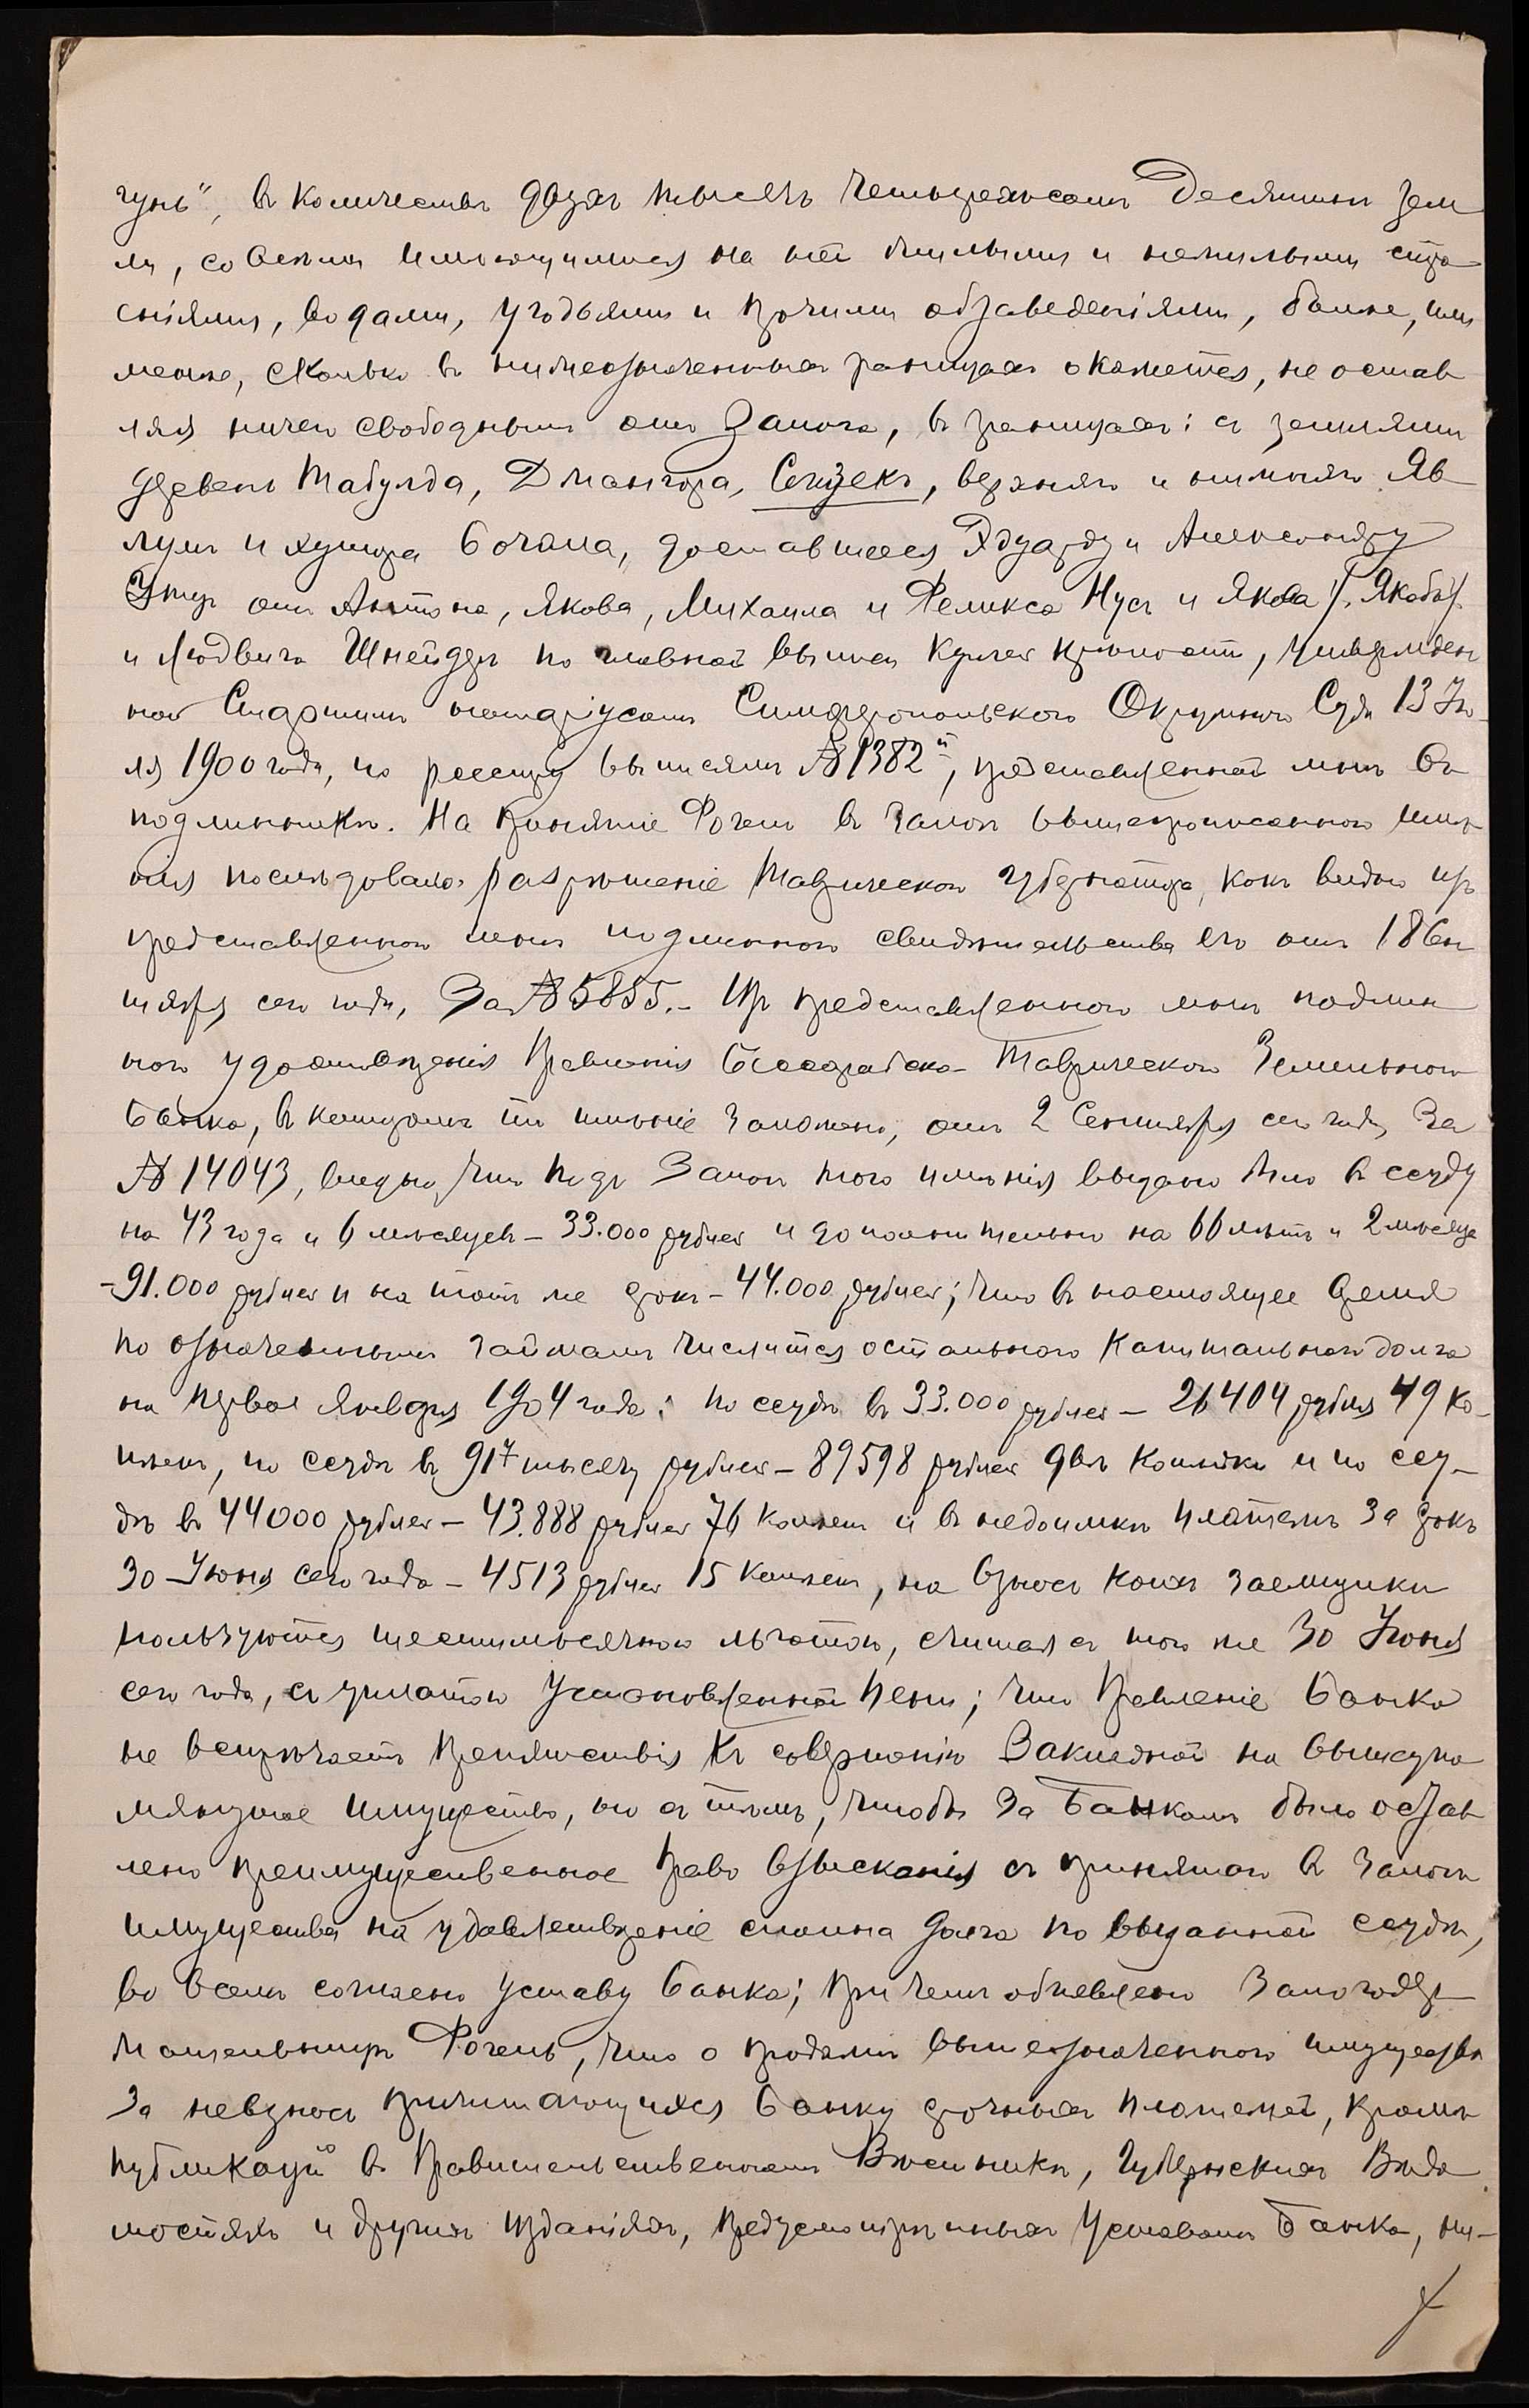 чунь", въ количествѣ двухъ тысячъ четырехсотъ десятинъ зем
ли, со всѣми имѣющимися на ней жилыми и нежилыми стро
еніями, водами, угодьями и прочими обзаведеніями, болѣе, или
менѣе, сколько въ нижеозначенныхъ границахъ окажется, не остав
ляя ничего свободнымъ отъ залога, въ границахъ: съ землями
деревень Табулда, Джангора, Сеизекъ, верхняго и нижняго Яв
лушъ и хутора Бочала, доставшееся Эдуарду и Александру
отъ Антона, Якова, Михаила и Феликса Нусъ и Якова /: Якобъ/:
и Людвига Шнейдеръ по главной выписи купчей крѣпости, утвержден
ной Старшимъ нотаріусомъ Симферопольскаго Окружнаго Суда 13 Ію
ля 1900 года, по реестру выписямъ № 1382й, представленной мнѣ въ
подлинникѣ. На принятіе Фогель въ залогъ вышепрописаннаго имѣ
нія послѣдовало разрѣшеніе Таврическаго Губернатора, какъ видно изъ
представленнаго мнѣ подлиннаго свидѣтельства его отъ 18 Сен
тября сего года, за № 5855.- Изъ представленнаго мнѣ подлин
наго удостовѣренія Правленія Бессарабско-Таврическаго Земельнаго
Банка, въ которомъ то имѣніе заложено, отъ 2 Сентября сего года, за
№ 14043, видно, что подъ залогъ того имѣнія выдано было въ ссуду
на 43 года и 6 мѣсяцевъ - 33.000 рублей и дополнительно на 66 лѣтъ и 2 мѣсяца
- 91.000 рублей и на тотъ же срокъ - 44.000 рублей; что въ настоящее время
по означеннымъ займамъ числится остального капитальнаго долга
на первое Января 1904 года: по ссудѣ въ 33.000 рублей - 26404 рубля 49 ко-
пѣекъ, по ссудѣ въ 91 тысячу рублей - 89598 рублей двѣ копѣйки и по ссу-
дѣ въ 44000 рублей - 43.888 рублей 76 копѣекъ и въ недоимкѣ платежъ за срокъ
30 Іюня сего года - 4513 рублей 15 копѣекъ, на взносъ коихъ заемщики
пользуются шестимѣсячною льготою, считая съ того же 30 Іюня
сего года, съ уплатою установленной пени; что Правленіе Банка
не встрѣчаетъ препятствія къ совершенію закладной на вышеупо
мянутое имущество, но съ тѣмъ, чтобы за Банкомъ было остав
лено преимущественное право взысканія съ принятаго въ залогъ
имущества на удовлетвореніе сполна долга по выданной ссудѣ,
во всемъ согласно Уставу Банка; при чемъ объявлено залогодер
жательницѣ Фогель, что о продажѣ вышеозначеннаго имущества
за невзносъ причитающихся Банку срочныхъ платежей, кромѣ
публикацій въ Правительственномъ Вѣстникѣ, Губернскихъ Вѣдо
мостяхъ и другихъ изданіяхъ, предусмотрѣнныхъ Уставомъ Банка, ни-